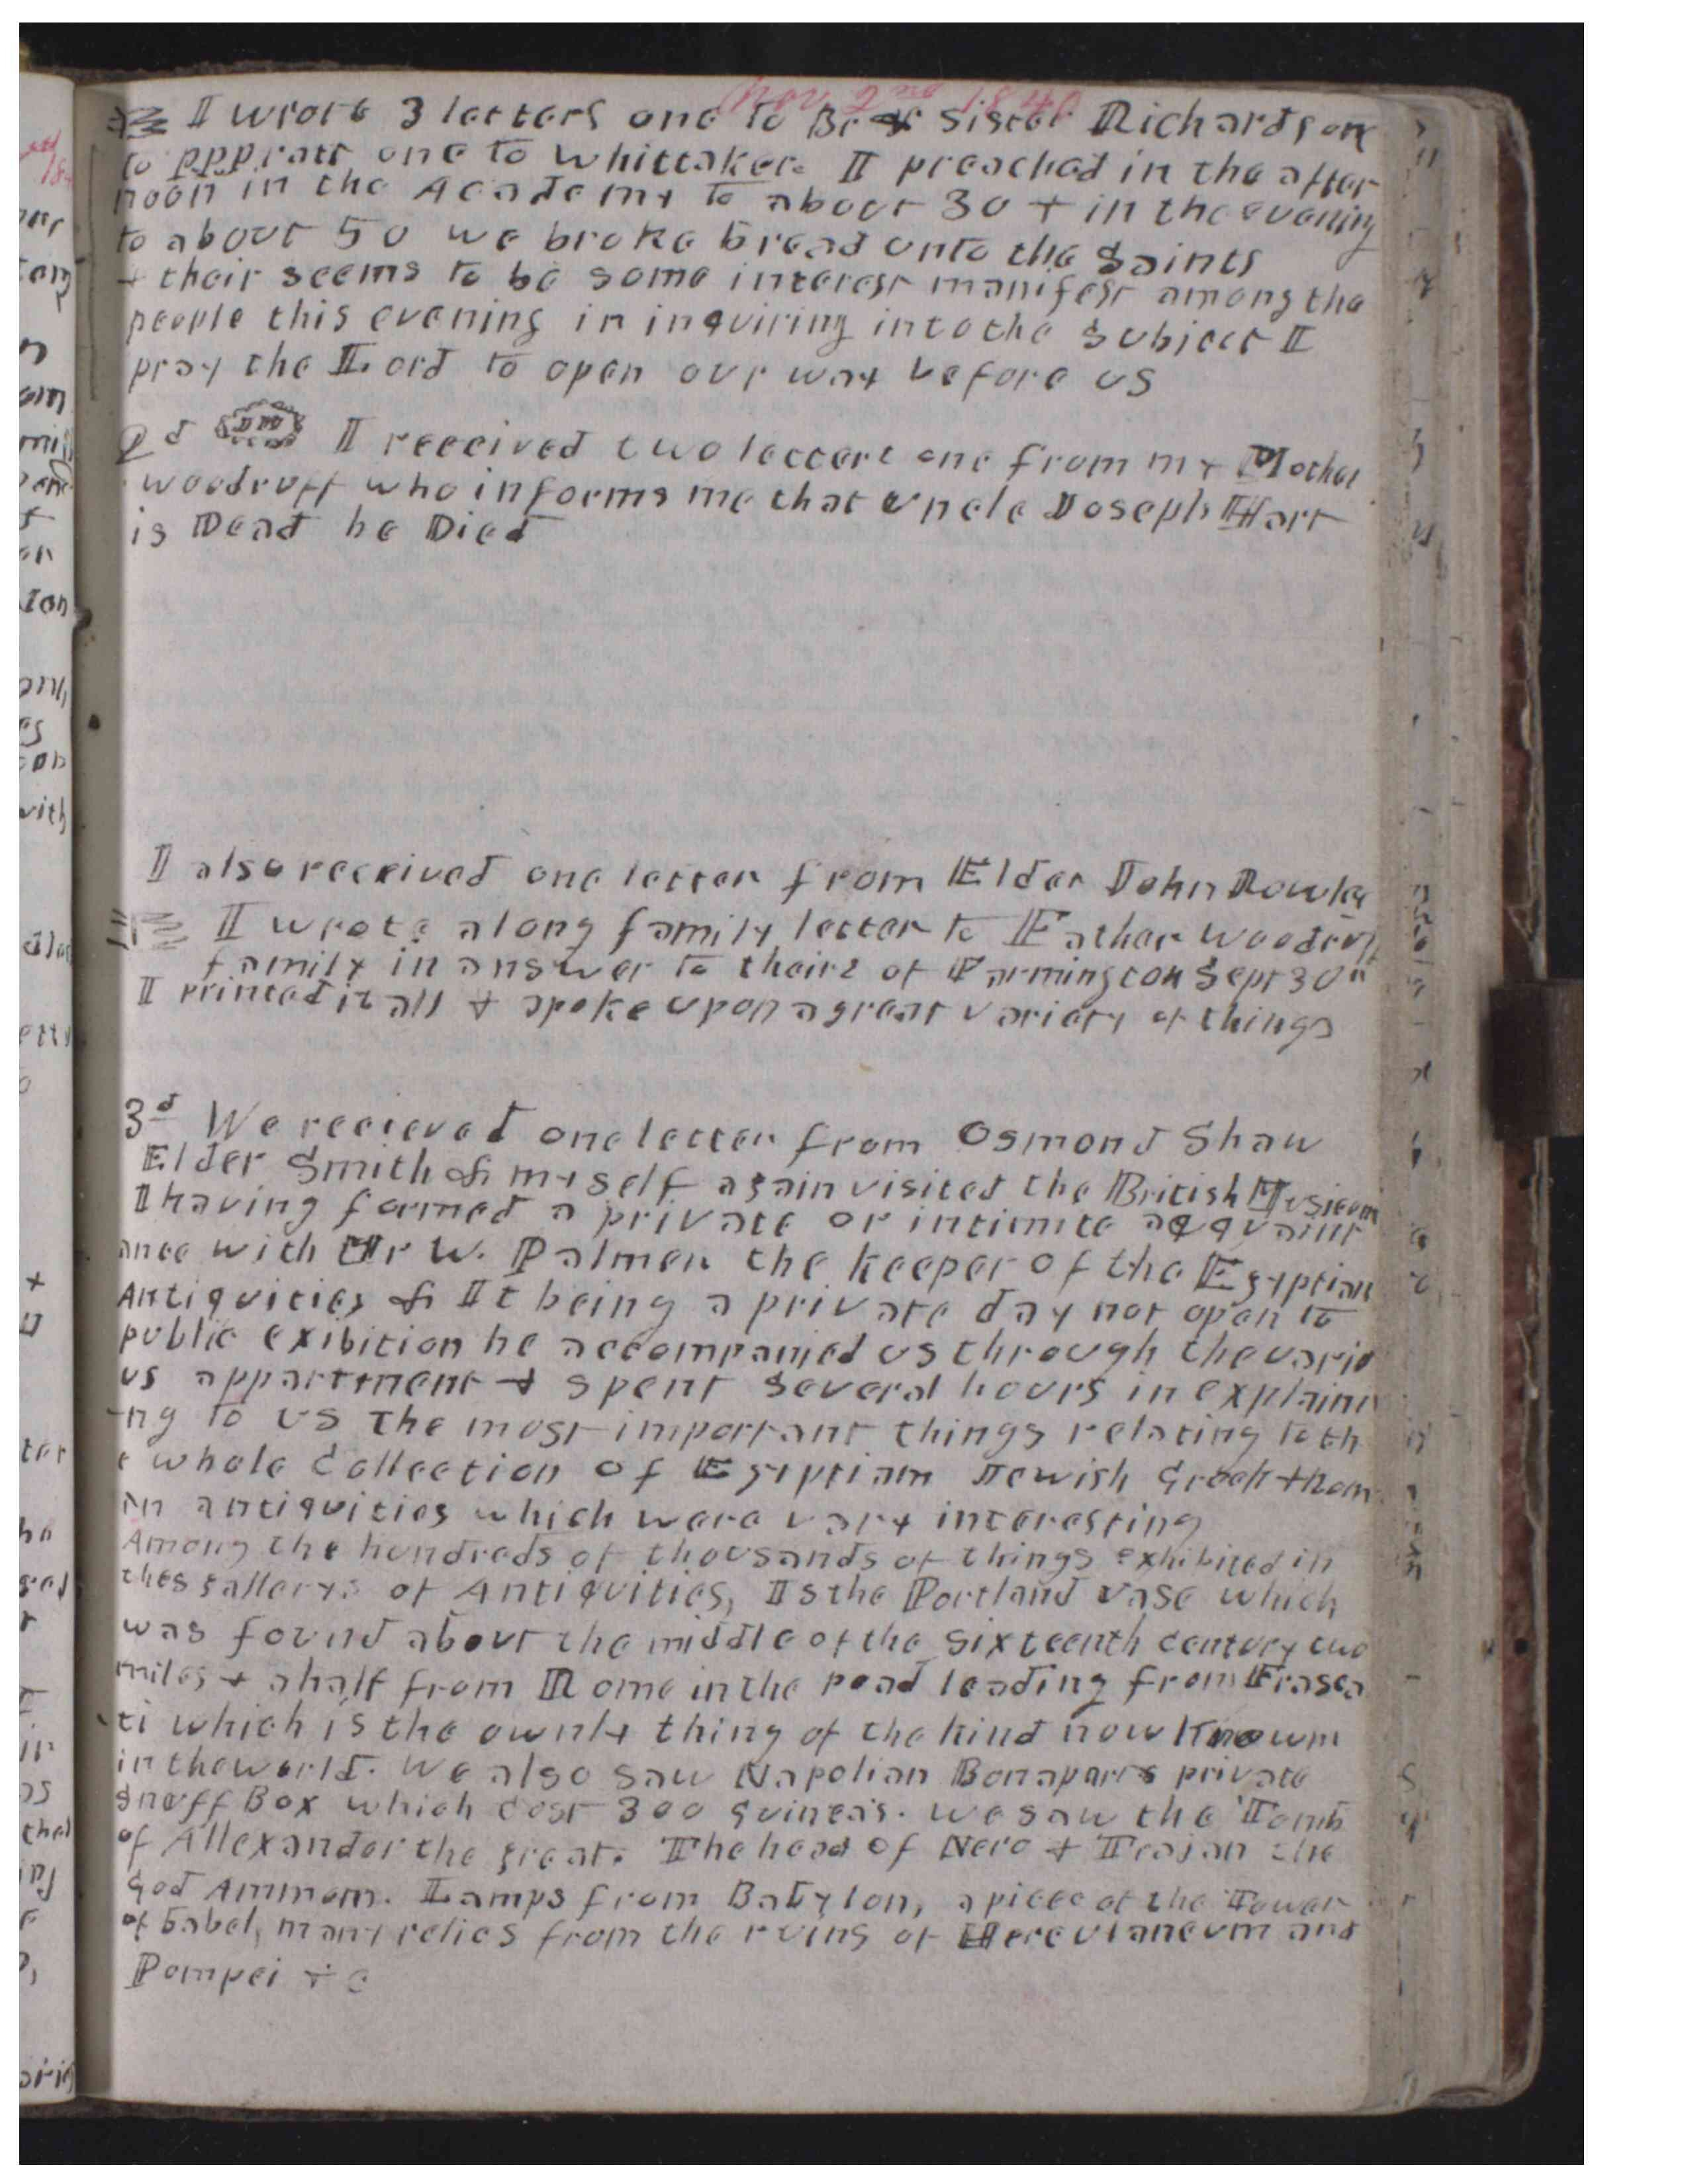 I wrote 3 letters one to Br & Sister Richardson
to PPPratt one to Whittaker. I preached in the after
noon in the Academy to about 30 + in the evening
to about 50 we broke bread unto the Saints
+ their seems to be some interest manifest among the
people this evening in inquiring into the subject I
pray the Lord to open our way before us
2d I received two letters one from my Mother
Woodruff who informs me that Uncle Joseph Hart
is Dead he Died
I also received one letter from Elder John Rowle
I wrote along family letter to Father Woodruff
family in answer to theirs of Farmington Sept 30th
I printed it all + spoke upon a great variety of things
3d We recieved one letter from Osmond Shaw
Elder Smith & myself again visited the British Musieum
I having formed a private or intimite acquaint
ance with Mr W. Palmer the keeper of the Egyptian
Antiquities & It being a private day not open to
public exibition he accompanied us through the vario
us appartment + spent several hours in explaini
-ng to us the most important things relating to th
e whole Collection of Egyptian Jewish Greek + Rom
an antiquities which were vary interesting
Among the hundreds of thousands of things exhibited in
thes gallerys of Antiquities, Is the Portland vase which
was found about the middle of the sixteenth century two
miles + a half from Rome in the road leading from Frasca
ti which is the ownly thing of the kind now known
in the world. We also saw Napolian Bonaparts private
snuff Box which cost 300 guineas. we saw the Tomb
of Allexander the great. The head of Nero + Trajan the
god Ammom. Lamps from Babylon, a piece of the Tower
of babel, many relics from the ruins of Herculaneum and
Pompei + c